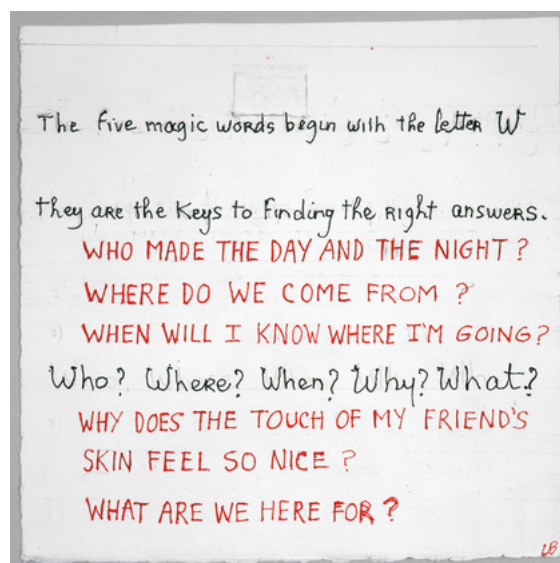 The five magic words begin with the letter W
They are the Keys to Finding the Right answers.
WHO MADE THE DAY AND THE NIGHT?
WHERE DO WE COME FROM ?
WHEN WILL I KNOW WHERE I'M GOING?
Who? Where? When? Why? What?
WHY DOES THE TOUCH OF MY FRIEND'S
SKIN FEEL SO NICE ?
WHAT ARE WE HERE FOR ?
LB